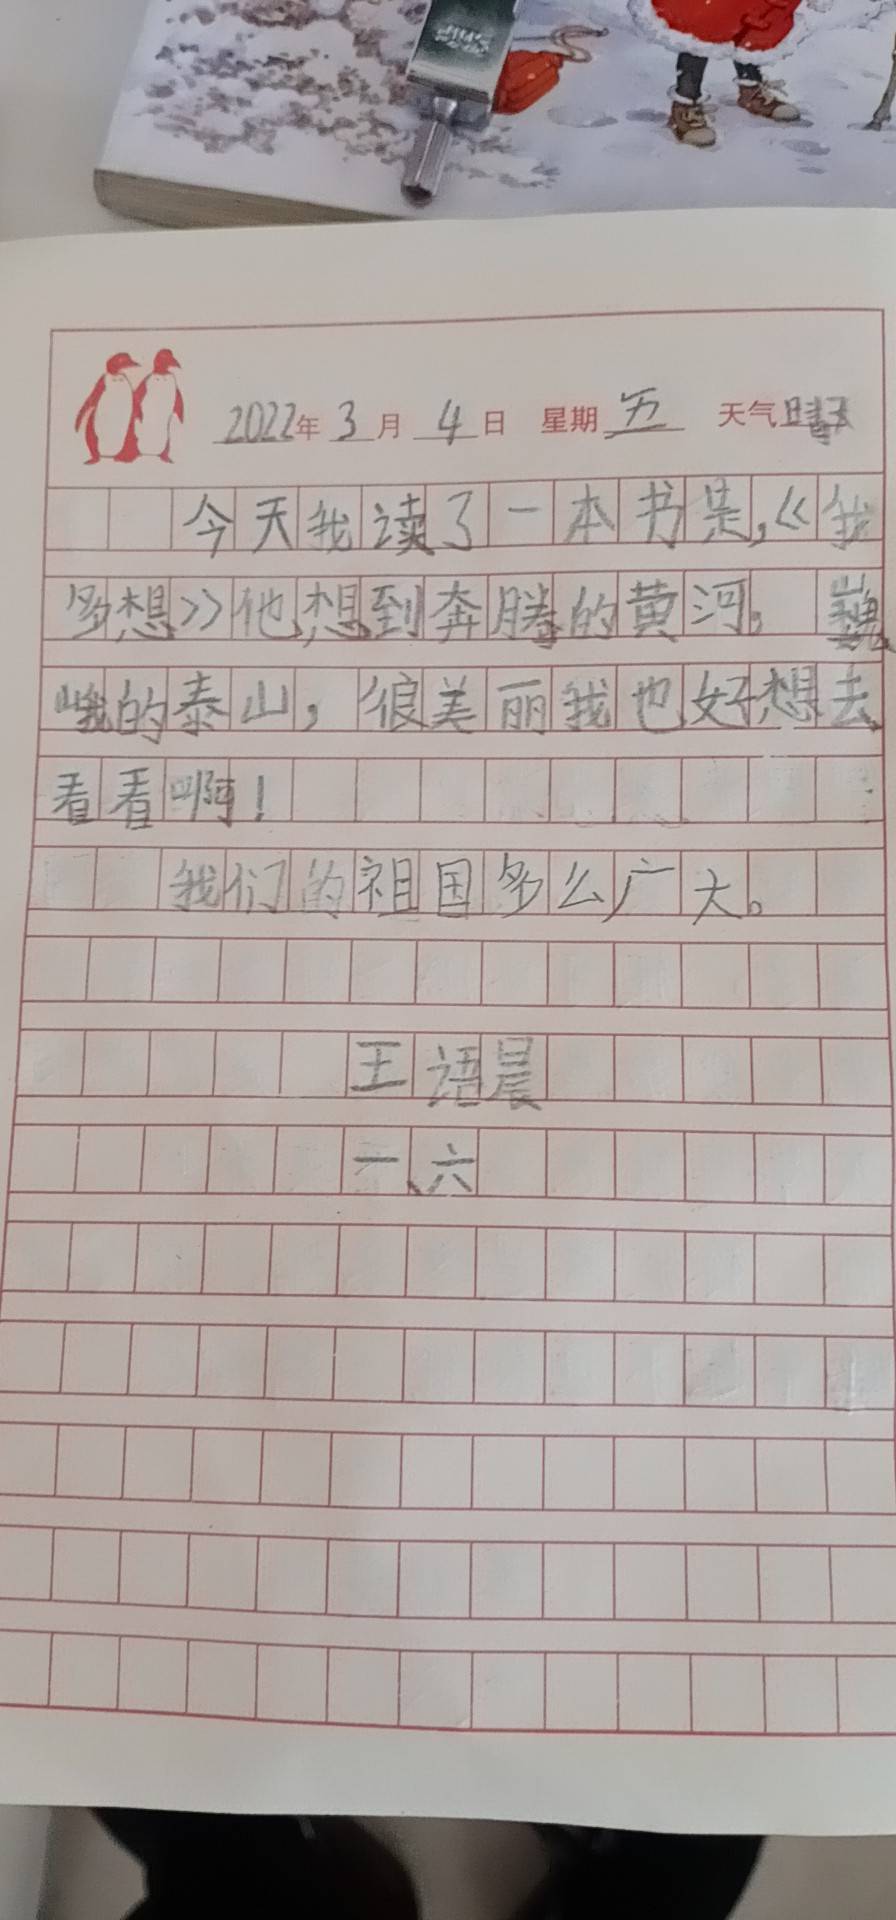 2022年3月4日 星期五 天气晴
今天我读了一本书是,《我
多想》他想到奔腾的黄河。巍
峨的泰山，很美丽我也好想去
看看啊！
我们的祖国多么广大。
王语晨
一、六